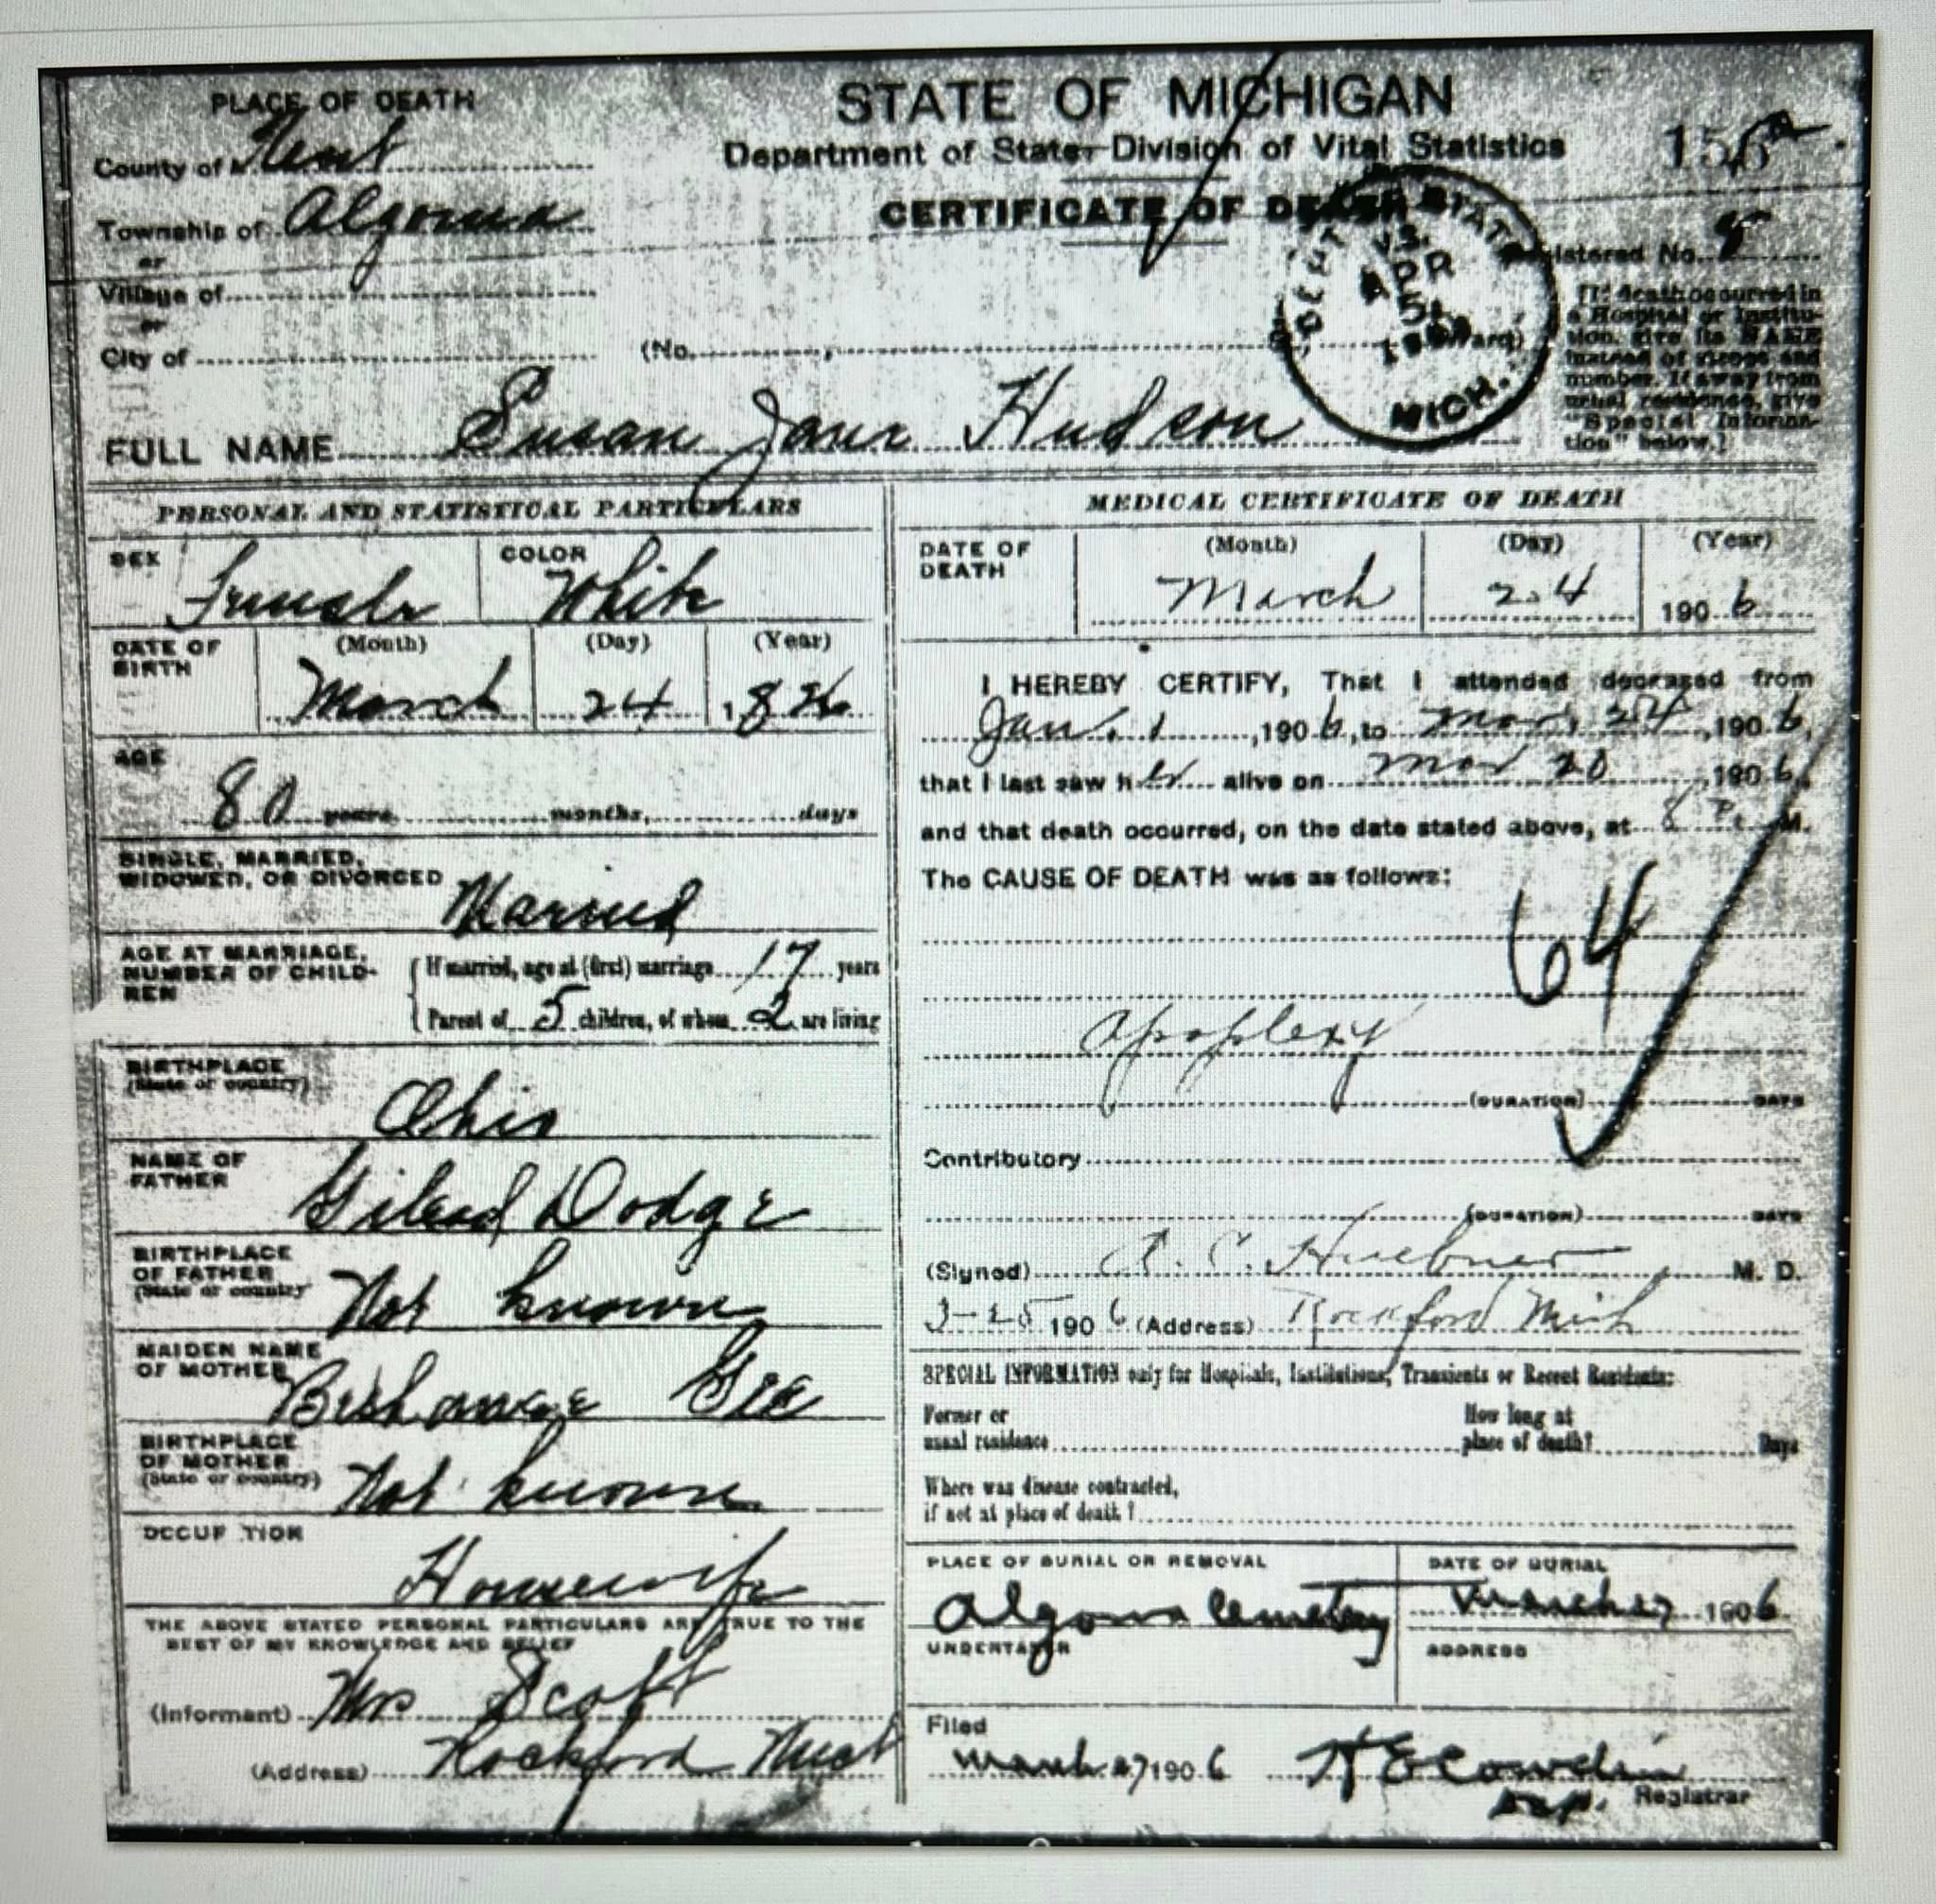 PLACE OF DEATH
County of Kent
Township of Algoma
or
Village of
or
City of
STATE OF MICHIGAN
Department of State-Division of Vital Statistics
CERTIFICATE OF DEATH
Registered No. 8
(No. , Ward)
DEPT STATE
V.S.
APR
5
MICH.
[If death occurred in
a Hospital or Institu-
tion, give its NAME
instead of street and
number. If away from
usual residence, give
"Special Informa-
tion" below.]
FULL NAME Susan Jane Hudson
PERSONAL AND STATISTICAL PARTICULARS
SEX Female
COLOR White
DATE OF BIRTH (Month) (Day) (Year)
March 24 1826
AGE
80 years, months, days
SINGLE, MARRIED,
WIDOWED, OR DIVORCED Married
AGE AT MARRIAGE,
NUMBER OF CHILD-
REN
If married, age at (first) marriage 17 years
Parent of 5 children, of whom 2 are living
BIRTHPLACE
(State or country)
Ohio
NAME OF
FATHER
Gilead Dodge
BIRTHPLACE
OF FATHER
(State or country
Not known
MAIDEN NAME
OF MOTHER
Gee
BIRTHPLACE
OF MOTHER
(State or country)
Not known
OCCUP TION
Housewife
THE ABOVE STATED PERSONAL PARTICULARS ARE TRUE TO THE
BEST OF MY KNOWLEDGE AND BELIEF
(Informant) Mrs Scott
(Address) Rockford Mich
MEDICAL CERTIFICATE OF DEATH
DATE OF DEATH (Month) (Day) (Year)
March 24 1906
I HEREBY CERTIFY, That I attended deceased from
Jan. 1, 1906, to Mar. 24, 1906,
that I last saw her alive on Mar 20, 1906,
and that death occurred, on the date stated above, at 8 P. M.
The CAUSE OF DEATH was as follows:
64
Apoplexy
(DURATION) DAYS
Contributory
(DURATION) DAYS
(Signed) C. Huebner M. D.
3-25 1906 (Address) Rockford Mich
SPECIAL INFORMATION only for Hospitals, Institutions, Transients or Recent Residents:
Former or
usual residence
How long at
place of death? Days
Where was disease contracted,
if not at place of death?
PLACE OF BURIAL OR REMOVAL
Algoma Cemetery
DATE OF BURIAL
March 27 1906
UNDERTAKER
ADDRESS
Filed
March 27 1906 H E Cowdin
Dep. Registrar